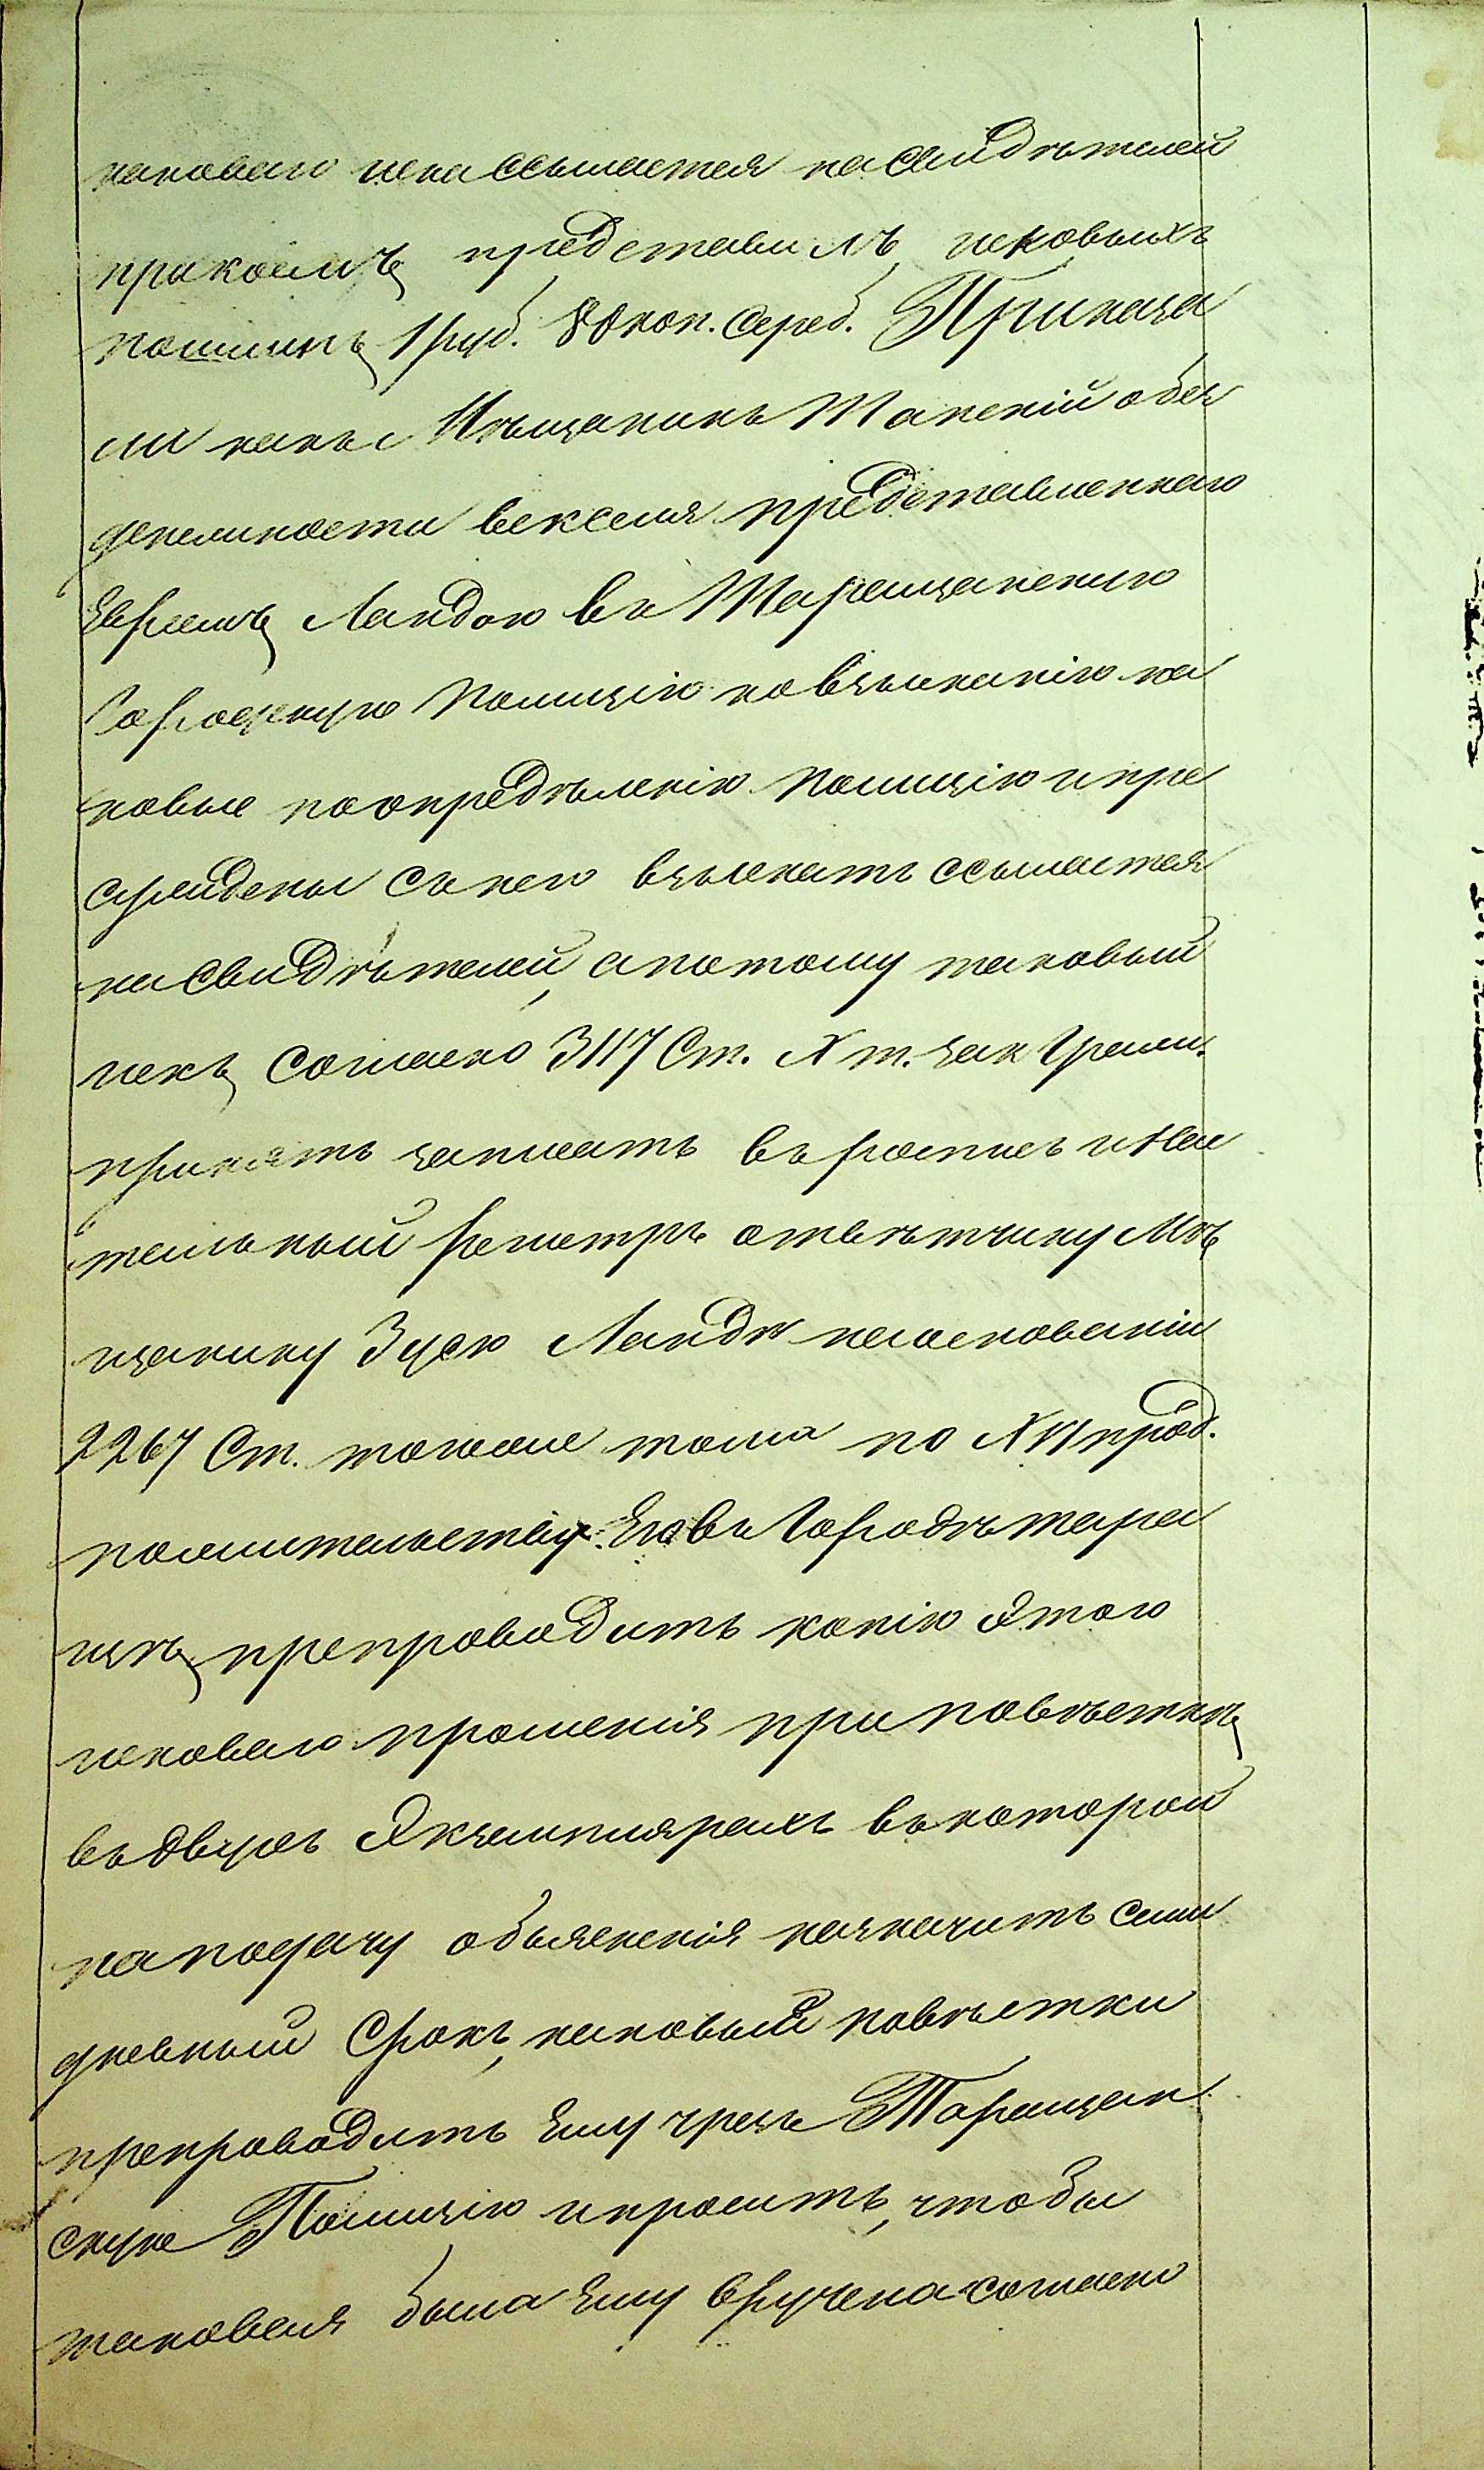 каковаго иска ссылается на свидѣтелей
при коемъ представилъ исковыхъ
пошлинъ 1 руб. 80 коп. сереб. Приказа
ли какъ Мѣщанинъ Манскій о без
денежности векселя представленнаго
Евреемъ Ландою въ Таращанскую
Городскую Полицію ко взысканію ка
ковые по опредѣленію Полиціи и пре
суждены съ него взыскать ссылается
на свидѣтелей, а потому таковый
искъ согласно 3117 Ст. X т. зак Граж.
принять записать въ роспись и Нас
тольный Регистръ отвѣтчику Мѣ
щанину Зусю Ландѣ на основаніи
2267 Ст. того же тома по XVI прод.
по жительству Его въ Городѣ Тара
щѣ препроводить копію этого
исковаго прошенія при повѣсткѣ
въ двухъ экземплярахъ въ которой
на подачу объясненія назначить семи
дневный срокъ, каковый повѣстки
препроводить Ему чрезъ Таращан
скую Полицію и просить, чтобы
таковая была Ему вручена согласно